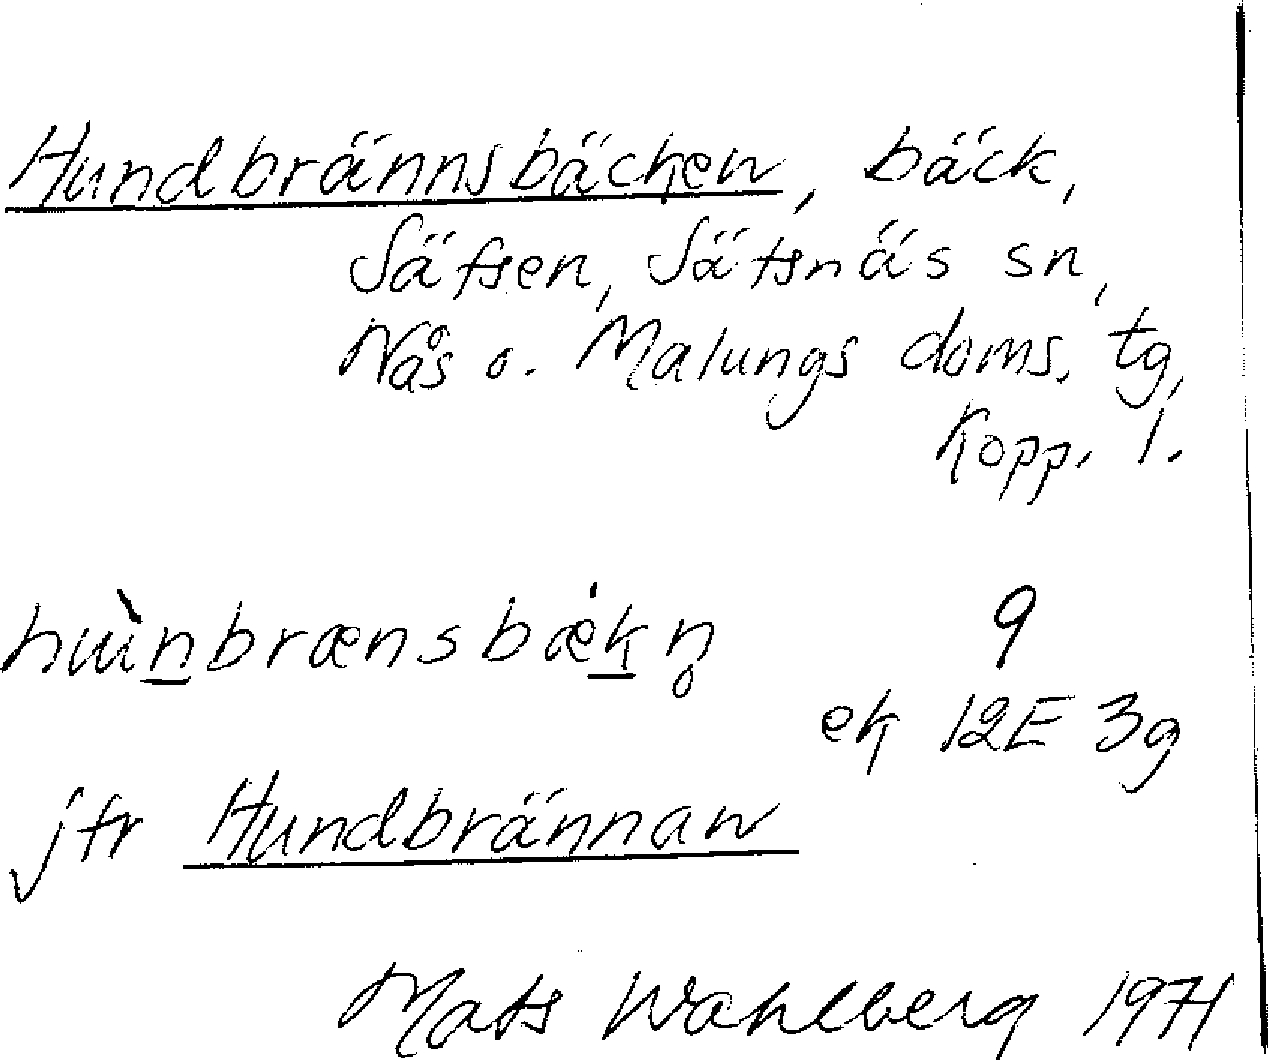 Hundbrännsbäcken, bäck,
Säfsen, Säfsnäs sn,
Nås o. Malungs doms. tg,
Kopp. l.
hùnbrænsbækn̥ 9
ek 12E 3g
jfr Hundbrännan
Mats Wahlberg 1971